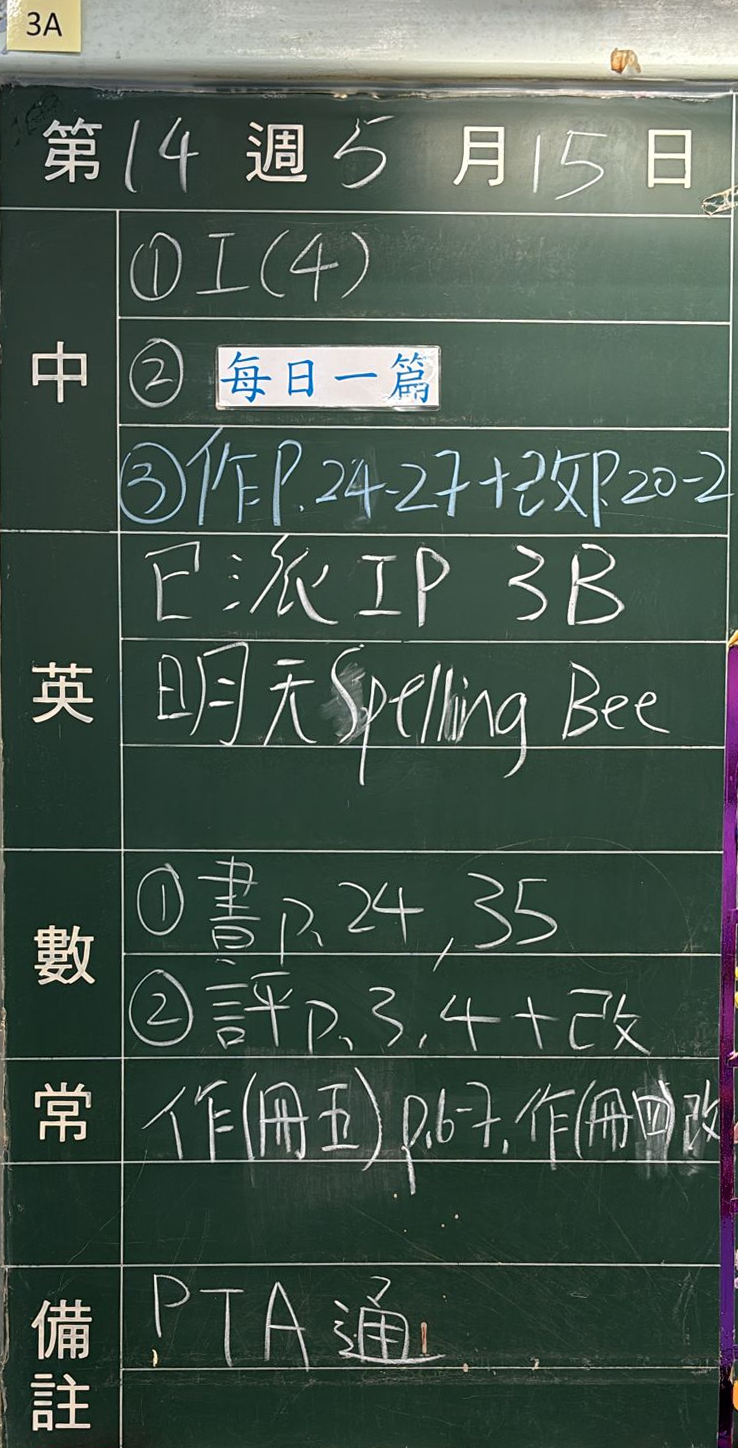 3A
第14週5月15日
中
①工(4)
②每日一篇
③作P.24-27+改P.20-2
英
已派IP 3B
明天Spelling Bee
數
①書p.24,35
②評p.3,4+改
常
作(冊五)p.6-7,作(冊四)改
備註
PTA通